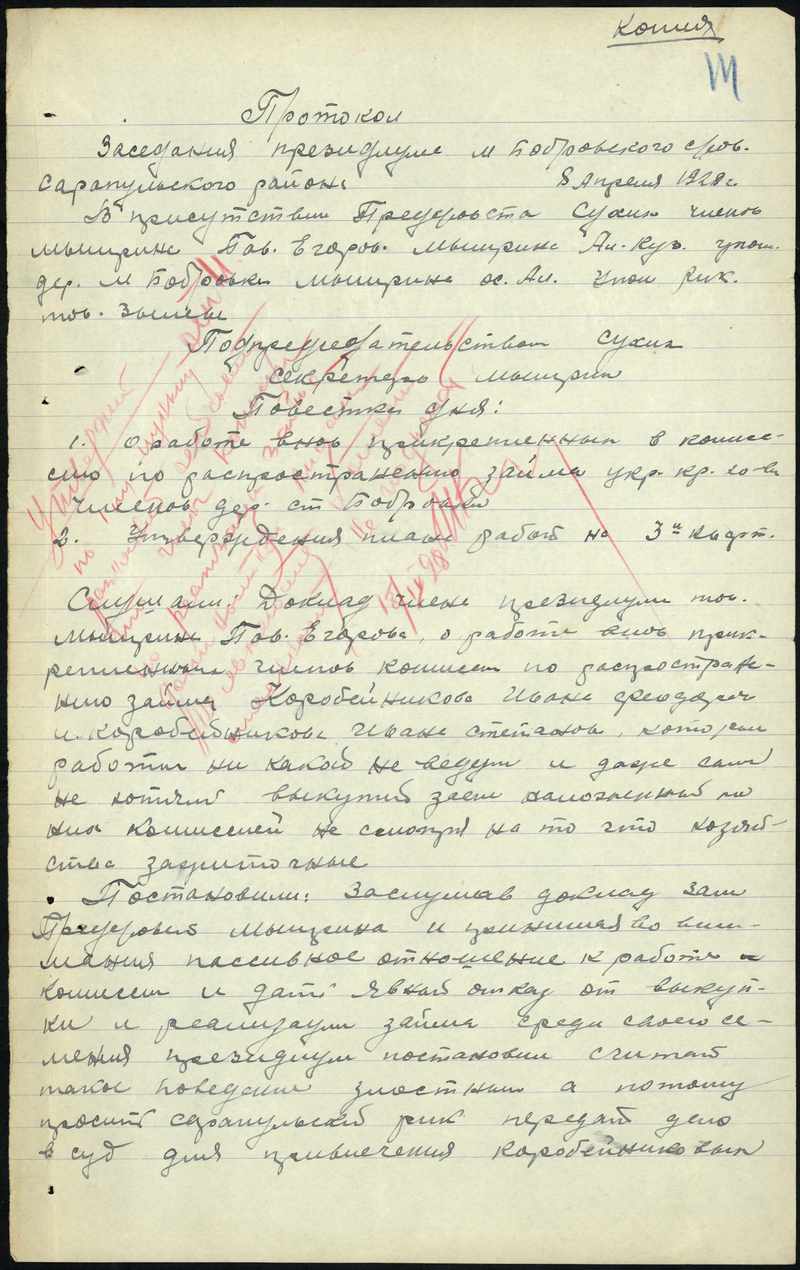 Копия
Протокол
Заседания президиума М Бобровского с/сов.
Сарапульского района 8 Апреля 1928 г.
В присутствии Предсовета Сухих членов
Мышкина Пав. Егоров. Мышкина Ал. Куз. упол.
дер. М Бобровки Мышкина Ос. Ал. Упол рик.
тов.
Подпредседательством Сухих
секретаре Мышкин
Повестка дня:
1. О работе вновь прикрепленных в комис-
сию по распространению займа укр. кр. хо-ва
членов дер. ст Бобровки
2. Утверждения плана работ на 3й кварт.
Слушали: Доклад члена президиума тов.
Мышкина Пав. Егорова, о работе вновь прик-
репленных членов комиссии по распростране-
нию займа Коробейникова Ивана
и Коробейникова Ивана Степанов, которые
работы ни какой не ведут и даже сами
не хотят выкупить заем наложенный на
них комиссией не смотря на то что хозяй-
ства зажиточные
Постановили: Заслушав доклад зам
Предсовета Мышкина и принимая во вни-
мания пассивное отношение к работе в
комиссии и дать явный отказ от выкуп-
ки и реализации займа среди своего се-
ления президиум постановил считать
такое поведение злостным а потому
просить Сарапульский рик передать дело
в суд для привлечения Коробейниковых